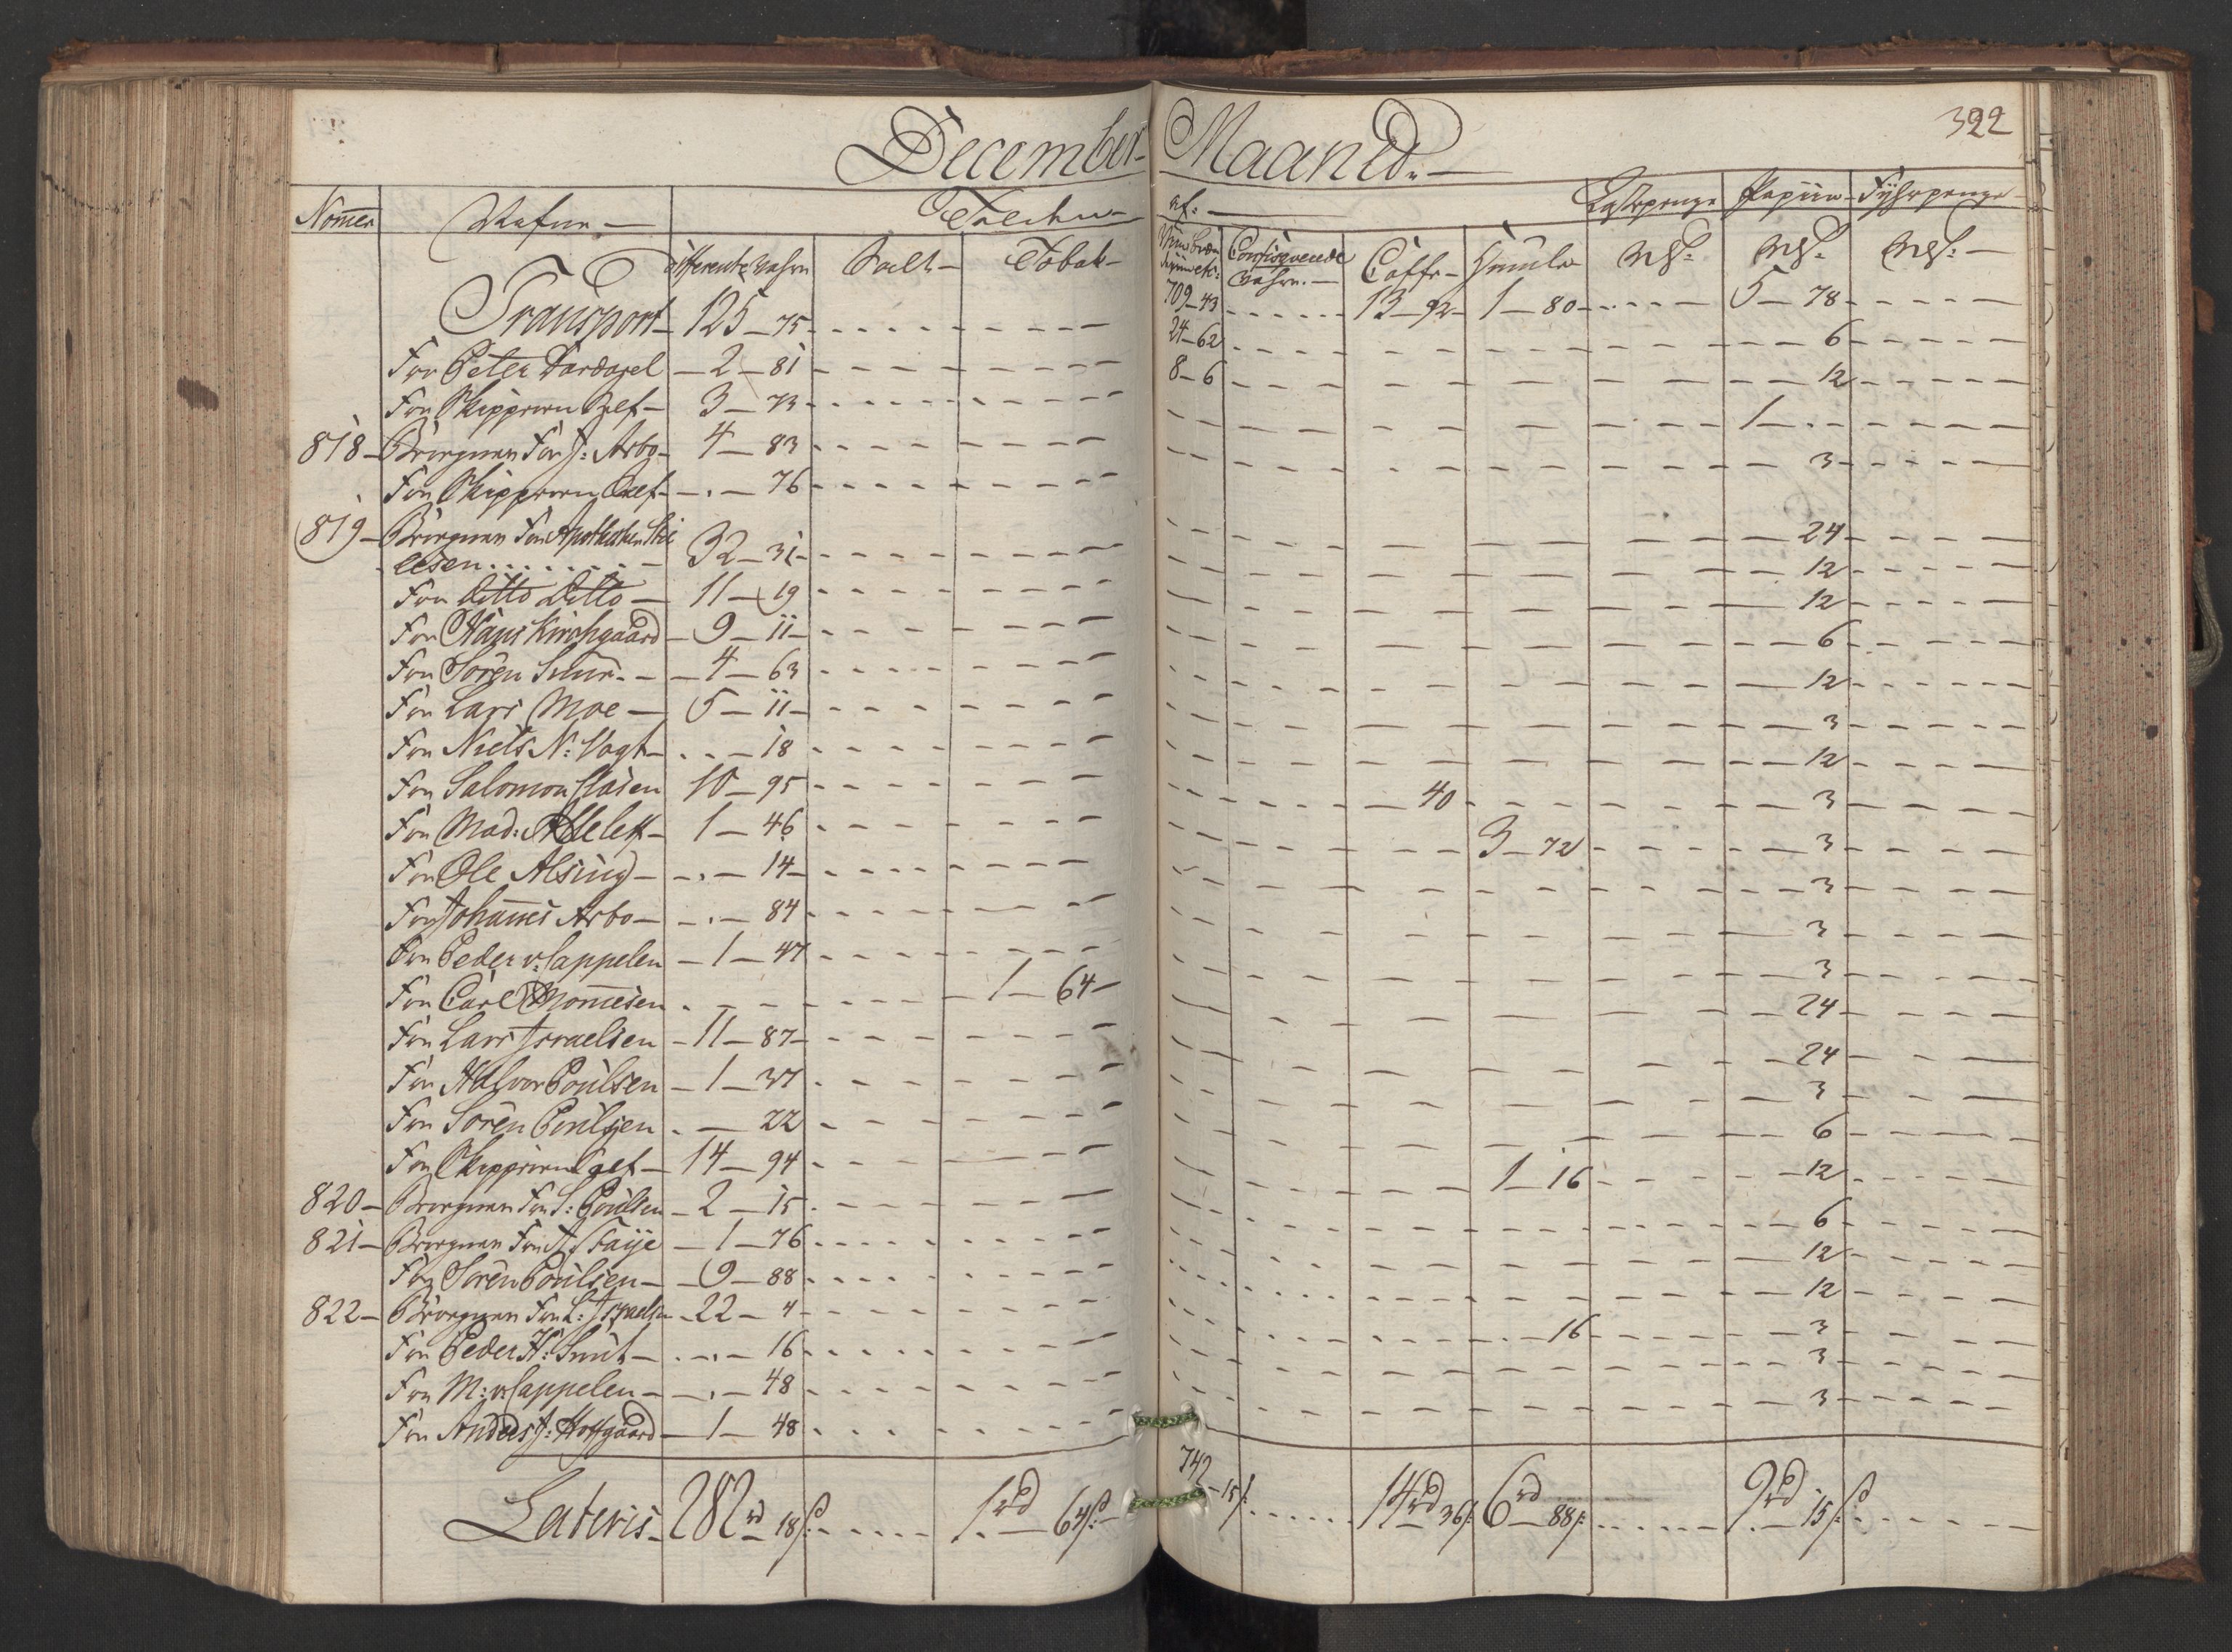 December Maaned.
322
Nomer Nafne Tolden af: Lastepenge Papiir Fyhrpenge
differente Vahre Salt Tobak Confisqverede Vahre. Coffe Humle
Transport 125 75 709 43 13 92 1 80 5 78
For Peter Dardagel 2 81 24 62 6
For Skipperen Self 3 73 8 6 12
818 For J: Arbo 4 83 1
For Skipperen Self 76 3
819 For Apotheker
lesen 32 31 24
For ditto ditto 11 19 12
For Hans Kirchgaard 9 11 12
For Sören 4 63 6
For Lars Moe 5 11 12
For Niels N: Vogt 18 3
For Salomon Clasen 10 95 12
For Mad: 1 46 40 3
For Ole Alsing 14 3 72 3
For Johannes Arbo 84 3
For Peder v: Cappelen 1 47 3
For Carl Mommesen 1 64 3
For Lars Israelsen 11 87 24
For Halvor Poulsen 1 37 24
For Sören Poulsen 22 3
For Skipperen Self 14 94 6
820 For S: Poulsen 2 15 1 16 12
821 For A: Faye 1 76 6
For Sören Poulsen 9 88 12
822 For L: Israelsen 22 4 12
For Peder H: Smit 16 16 3
For M: v: Cappelen 48 3
For Anders J: Hoffgaard 1 48 3
Lateris 282 rd 18 s 1 rd 64 s 742 15 s 14 rd 36 s 6 rd 88 s 9 rd 15 s